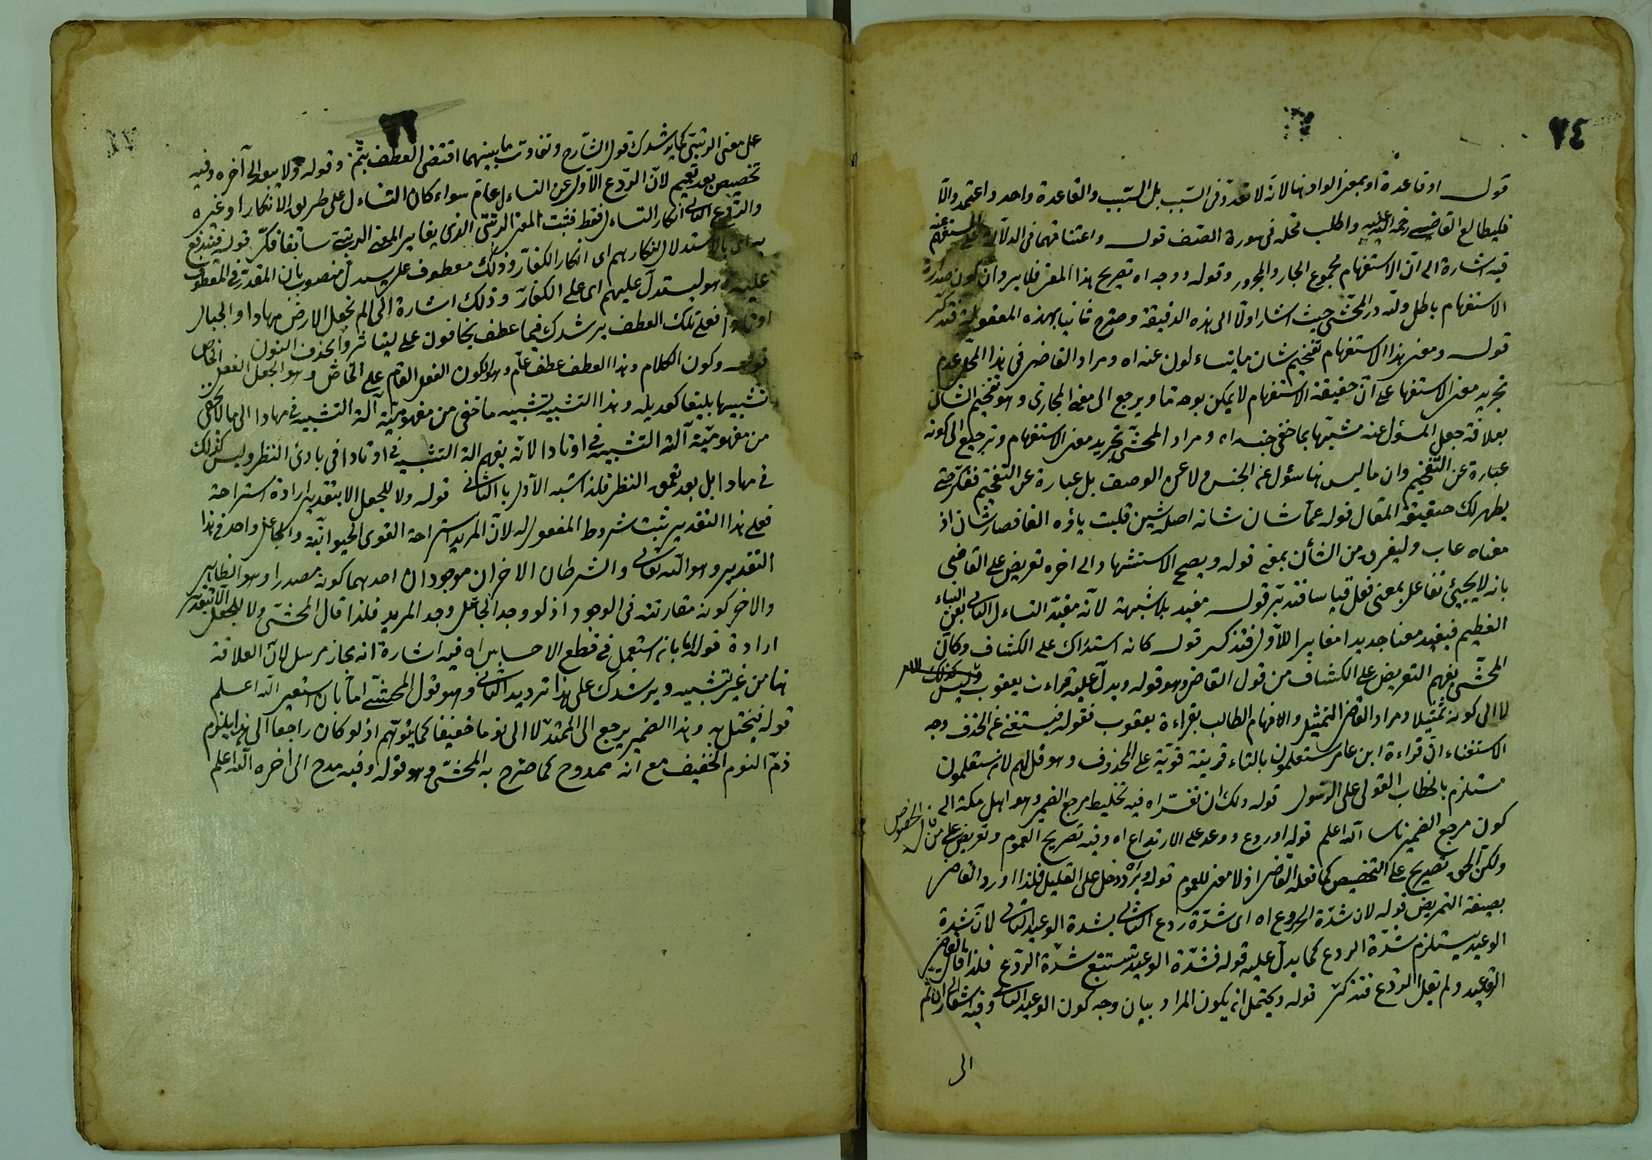 ٧٤
قوله او قاعدة او بمعنى الواو هنا لانه لا تعدد في السبب بل السبب والقاعدة واحد واعتمد والا
فليطالع القاضي رحمه الله واطلب محله في سورة الصف قوله واعتنا فهما في الدلالة
فيه اشارة الى ان الاستفهام مجموع الجار والمجرور وقوله ووجه اه تصريح هذا المعنى فلا يرد ان كون صدر
الاستفهام باطل ولله در المحشى حيث اشار اولا الى هذه الدقيقة وصرح ثانيا بهذه المعقولية فتذكر
قوله ومعنى هذا الاستفهام تفخيم شان ما يتساءلون عنه اه ومراد القاضي في هذا المحل عدم
تجريد معنى الاستفهام على ان حقيقة الاستفهام لا يمكن بوجه ما ويرجع الى معنى المجازى وهو تفخيم الشان
بعلاقة جعل المسؤل عنه مشبها بما خفى جنسه اه ومراد المحشى تجريد معنى الاستفهام وترجيع الى كونه
عبارة عن التفخيم وان ما ليس هنا سؤل عن الجنس ولا عن الوصف بل عبارة عن التفخيم فتفكر حتى
يظهر لك حقيقة المقال قوله عما شان شانه اصله شين قلبت ياؤه الفا فصار شان اذ
معناه عاب وليفرق من الشأن بمعنى قوله ويصح الاستشهاد الى اخره تعريض على القاضى
بانه لا يجيئ تفاعل بمعنى فعل قياسا فتدبر قوله مفيد بلا شبهة لانه مفيد التساءل الثانى بعن النباء
العظيم فيفيد معنا جديدا مغايرا للاول فتذكر قوله كانه استدراك على الكشاف وكان
المحشى يفهم التعريض على الكشاف من قول القاضى وهو قوله ويدل عليه قراءت يعقوب وليس كذلك
لا الى كونه تمثيلا ومراد القاضى التمثيل والافهام الطالب بقراءة يعقوب فقوله فيستغنى عن الحذف وجه
الاستغناء ان قراءة ابن عامر ستعلمون بالتاء قرينة قوية على المحذوف وهو قل لهم لان ستعلمون
مستلزم بالخطاب القولى على الرسول قوله ولك ان تفسر اه فيه تخليط مرجع الضمير وهو اهل مكة الى
كون مرجع الضمير ناسا الله اعلم قوله او ردع ووعد على الارتداع اه وفيه تصريح العموم وتعريض على من قال الخصوص
ولكن الحق تصريح على التخصيص كما فعله القاضى اذ لا معنى للعموم قوله ويرد دخل على التعليل فلذا اورد القاضى
بصيغة التمريض قوله لان شدة الردع اه اى شدة ردع الثانى بشدة الوعيد الثانى لان شدة
الوعيد يستلزم شدة الردع كما يدل عليه قوله فشدة الوعيد تستتبع شدة الردع فلذا قال القاضى
الوعيد ولم يقل الردع فتذكر قوله ويحتمل ان يكون المراد بيان وجه كون الوعيد الثانى وفيه اشعار الى ان ثم
الى
على معنى الرتبى كما يرشدك قول الشارح وتفاوت ما بينهما اقتضى العطف بثم وقوله ولا يبعد الى آخره وفيه
تخصيص بعد تعميم لان الردع الاول عن التساءل عام سواء كان التساءل على طريق الانكار او غيره
والردع الثانى انكار التساءل فقط فثبت المعنى الرتبى الذى يغاير المعنى الرتبى سابقا فكر قوله فتندفع
الاستدلال انكارهم اى انكار الكفار وذلك معطوف على يستدل منصوب بان المقدر في المعطوف
عليه وهو ليستدل عليهم اى على الكفار وذلك اشارة الى الم نجعل الارض مهادا والجبال
اوتادا فعلى تلك العطف يرشدك فيما عطف يخافون على ليتاثروا بحذف النون
قوله وكون الكلام وهذا العطف عطف عام وهو لكون الفعل العام على الخاص وهو الجعل الفعل الخاص
تشبيها بليغا كعديله وهذا التشبيه تشبيه ما خفى من مفهومية آلة التشبيه في مهادا الى ما لا يخفى
من مفهومية آلة التشبيه في اوتادا لانه يفهم الة التشبيه في اوتادا في بادى النظر وليس كذلك
في مهادا بل بعد تعمق النظر فلذا شبه الاول بالثانى قوله ولا للجعل الا بتقدير ارادة استراحة
فعلى هذا التقدير ثبت شروط المفعول له لان المريد استراحة القوى الحيوانية والجاعل واحد في هذا
التقدير وهو الله تعالى والشرطان الاخران موجودان احدهما كونه مصدرا وهو الظاهر
والاخر كونه مقارنته في الوجود اذ لو وجد الجاعل وجد المريد فلذا قال المحشى ولا للجعل الا بتقدير
ارادة قوله اما بانه استعمل في قطع الاحساس اه فيه اشارة انه مجاز مرسل لان العلاقة
هنا من غير تشبيه ويرشدك على هذا ترديد الثانى وهو قول المحشى اما بان استعير الله اعلم
قوله فيختل به وهذا الضمير يرجع الى الممتد لا الى نوما خفيفا كما يتوهم اذ لو كان راجعا الى هذا يلزم
ذم النوم الخفيف مع انه ممدوح كما صرح به المحشى وهو قوله وفيه مدح الى اخره الله اعلم